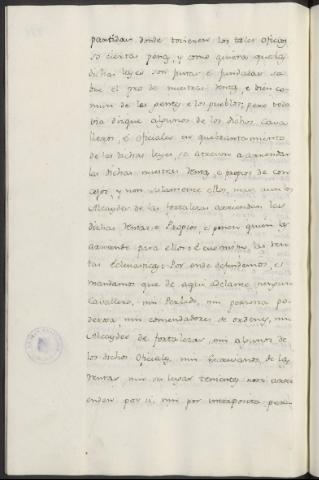 partidas donde tovieren los tales oficios
so ciertas penas, y como quiera que las
dichas leyes son justas e fundadas so
bre el pro de nuestras rentas, e bien co-
mun de las gentes e los pueblos; pero toda
via dizque algunos de los dichos cava
lleros, e oficiales en quebrantamiento
de las dichas leyes, se atreven a arrendar
las dichas nuestras rentas, e propios de con
cejos, y non solamente ellos, mas aun los
Alcaydes de las fortalezas arriendan las
dichas rentas e Propios, e ponen quien las
arriende para ellos: e eso mismo las ren
tas Eclesiasticas: Por ende defendemos, e
mandamos que de aqui adelante ningun
Cavallero, nin Perlado, nin persona po
derosa, nin comendadores de ordenes, nin
Alcaydes de fortalezas, nin algunos de
los dichos Oficiales, nin Escrivanos de las
rentas nin sus lugares tenientes non arri
enden por si, nin por interposita perso